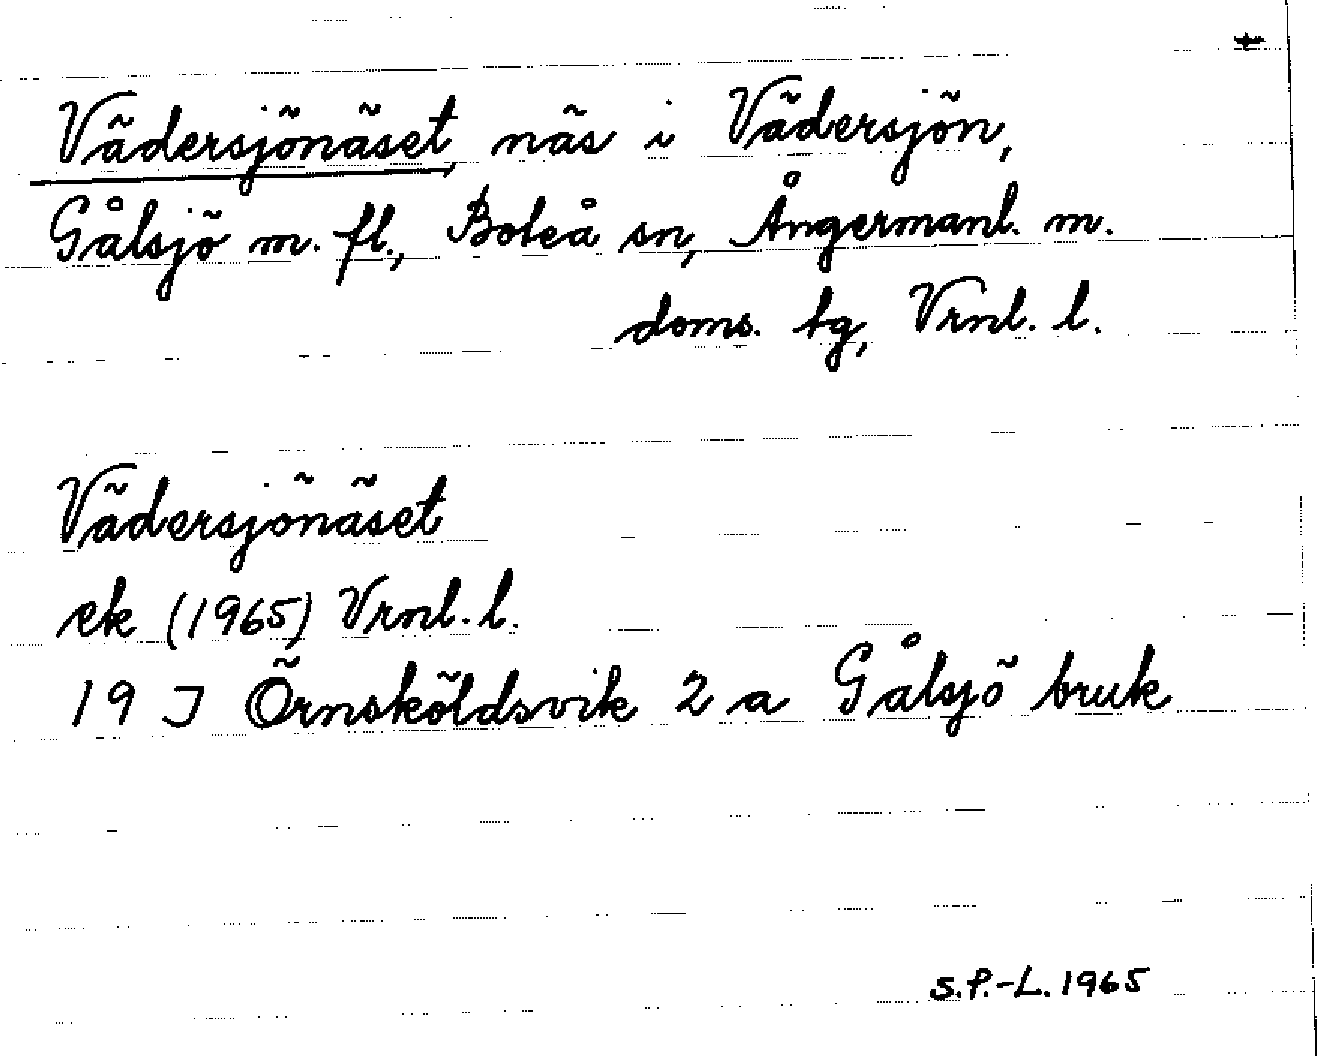 Vädersjönäset, näs i Vädersjön,
Gålsjö m. fl., Boteå sn, Ångermanl. m.
doms. tg, Vrnl. l.
Vädersjönäset
ek (1965) Vrnl. l.
19 J Örnsköldsvik 2 a Gålsjö bruk
S.P.-L. 1965